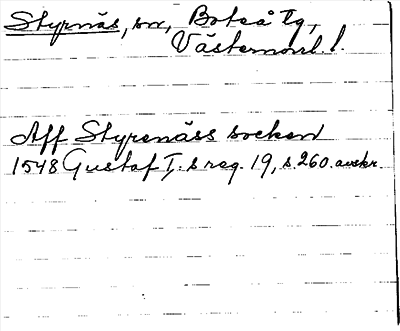 Styrnäs, sn, Boteå tg,
Västernorrl. l.
Aff Styrenäss socken
1548 Gustaf I:s reg. 19, s. 260. avskr.